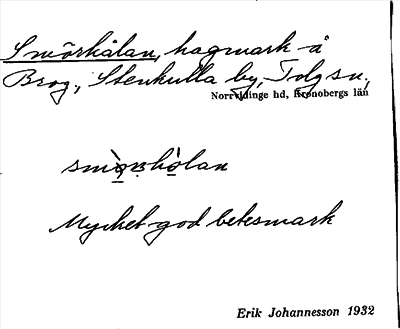 Smörhålan, hagmark å
Brog., Stenkulla by, Tolg sn,
Norrvidinge hd, Kronobergs län
Mycket god betesmark
Erik Johannesson 1932